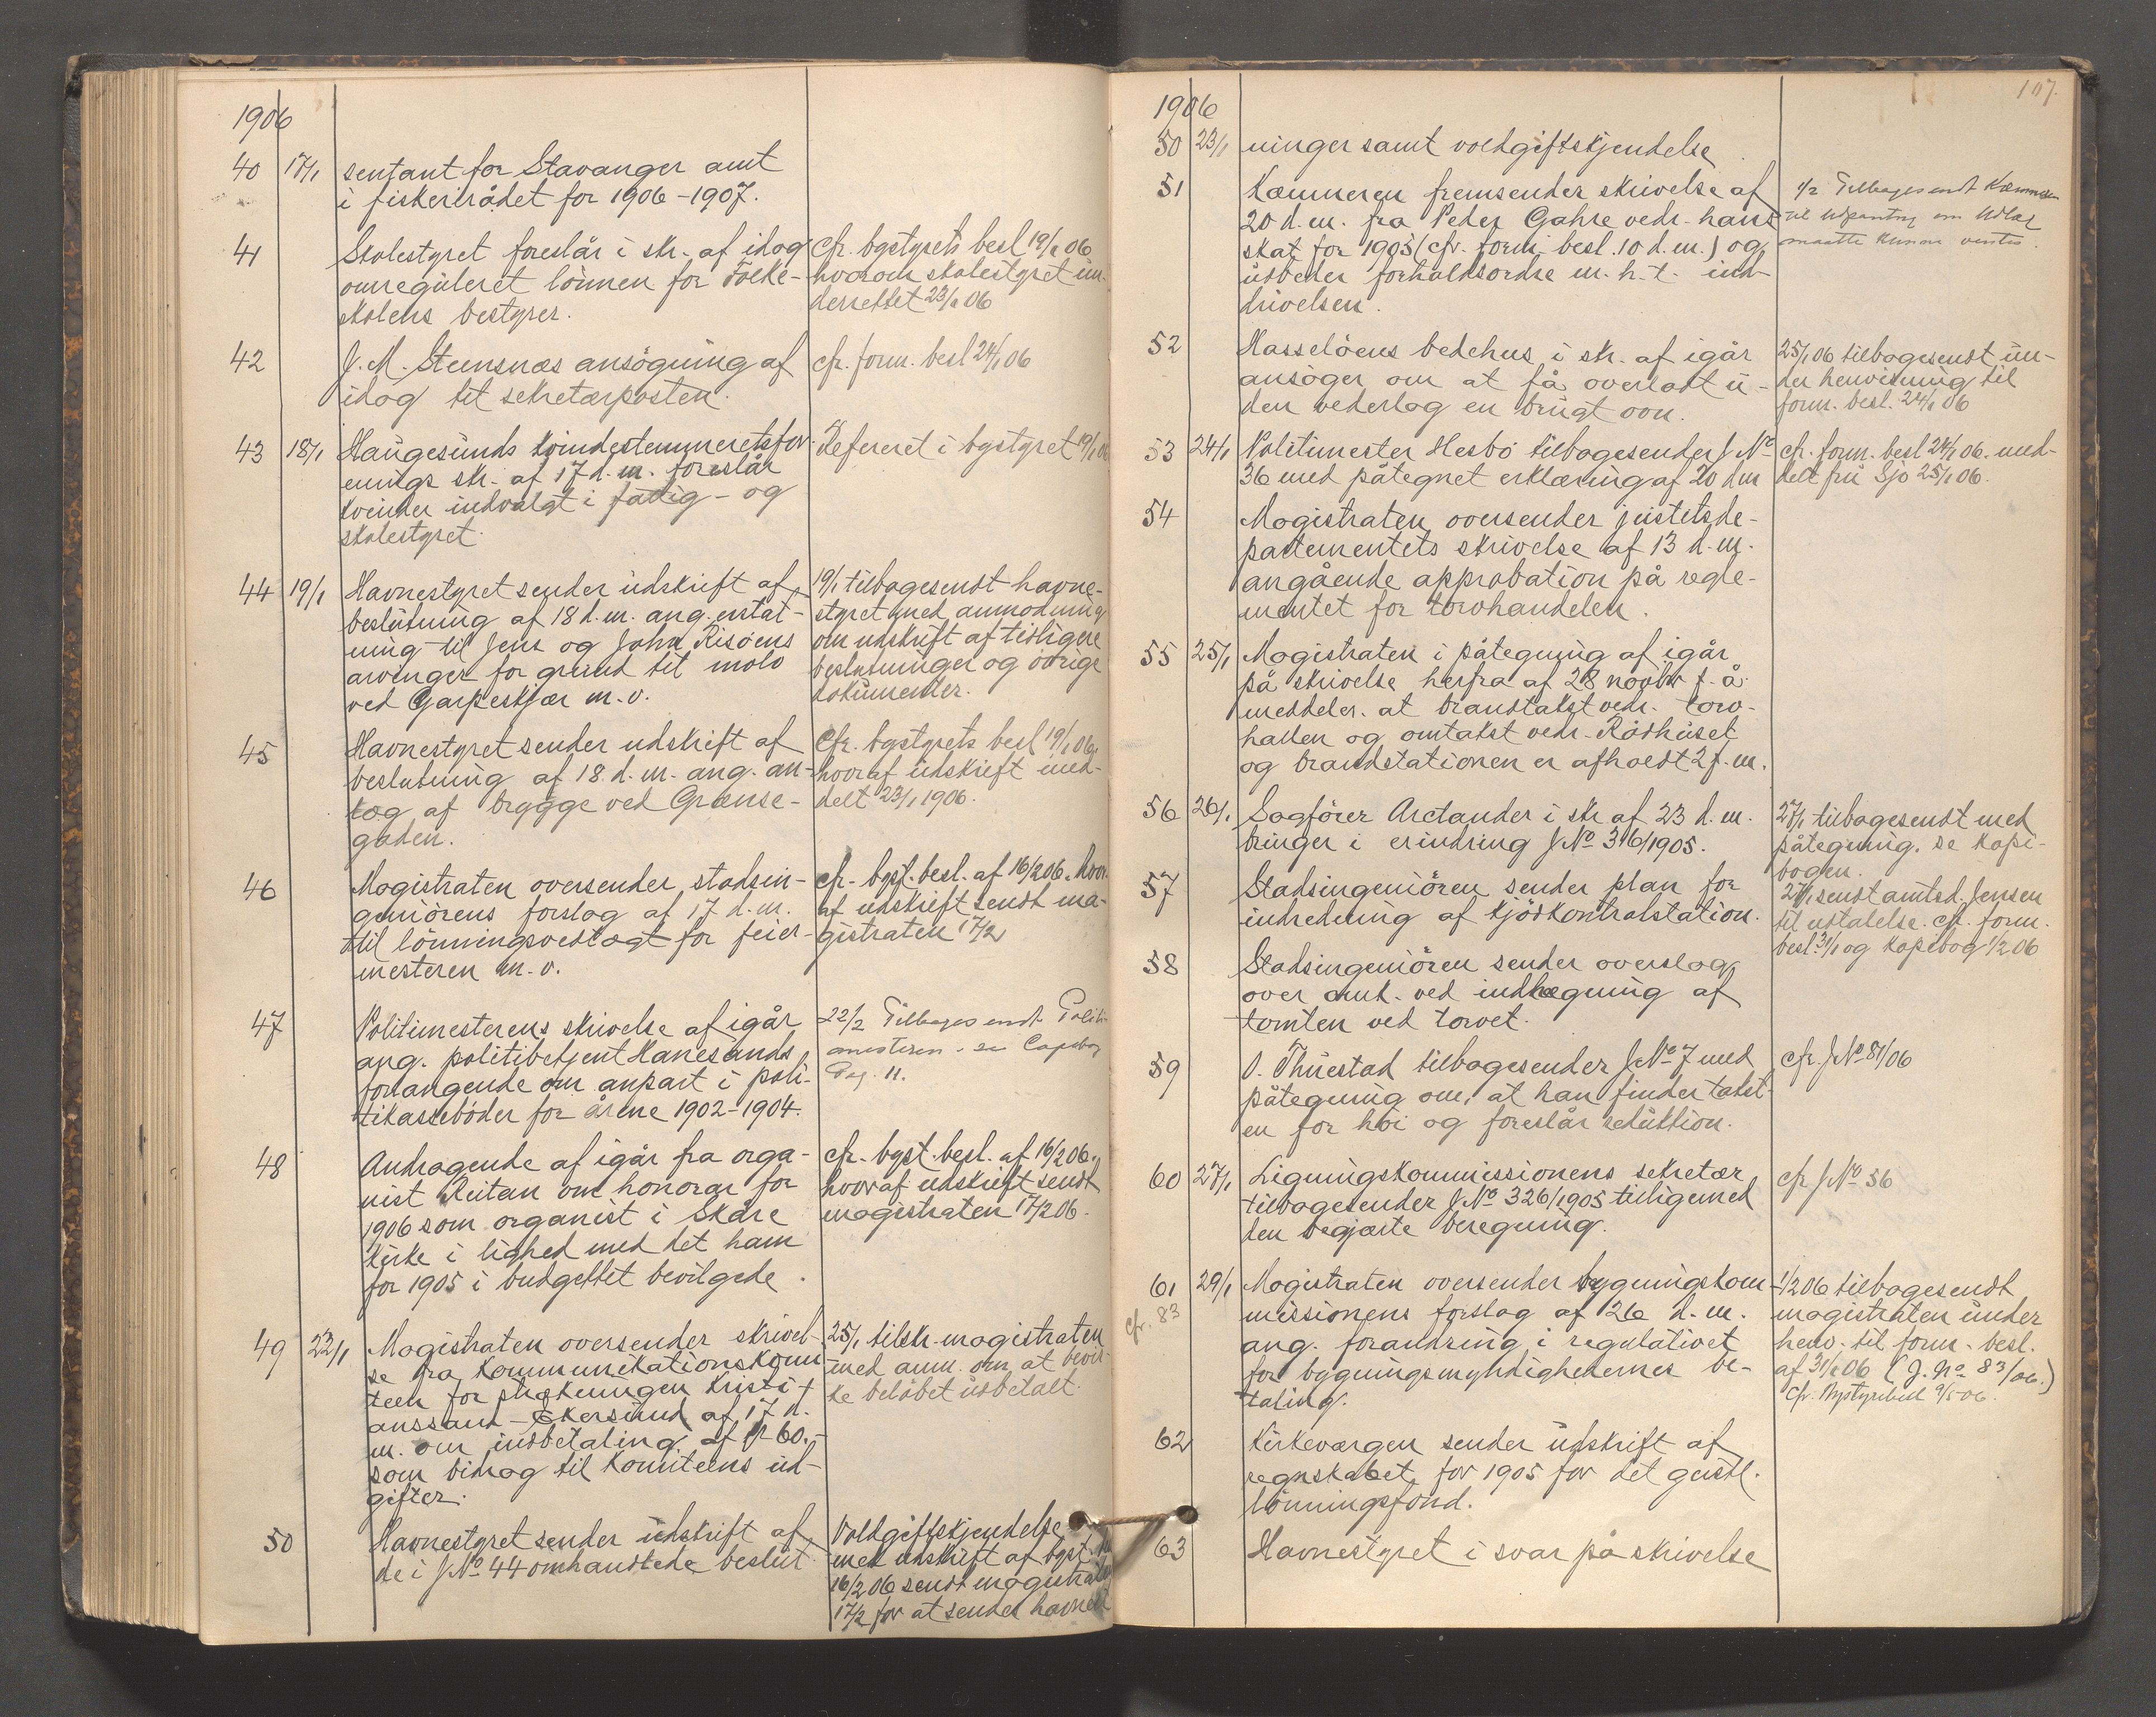 1906
40 17/1 sentant for Stavanger amt
i fiskerirådet for 1906-1907.
41 Skolestyret foreslår i skr. af idag
omreguleret lönnen for Folke-
skolens bestyrer.
cfr. bystyrets besl 19/1 06
hvorom skolestyret un-
derrettet 23/1 06
42 J. M. Steensnæs ansögning af
idag til sekretærposten.
cfr. form. besl 24/1 06
43 18/1 Haugesunds kvindestemmeretsfor-
enings skr. af 17 d. m. foreslår
kvinder indvalgt i fattig- og
skolestyret.
Refereret i bystyret 19/1 06
44 19/1 Havnestyret sender udskrift af
beslutning af 18 d. m. ang. erstat-
ning til Jens og John Risöens
arvinger for grund til molo
ved Garpeskjær m. v.
19/1 tilbagesendt havne-
styret med anmodning
om udskrift af tidligere
beslutninger og övrige
dokumenter.
45 Havnestyret sender udskrift af
beslutning af 18. d. m. ang. an-
læg af brygge ved Grænse-
gaden.
Cfr. bystyrets besl 19/1 06,
hvoraf udskrift med-
delt 23/1 1906.
46 Magistraten oversender stadsin-
geniörens forslag af 17 d. m.
til lönningsvedtægt for feier-
mesteren m. v.
cfr. byst. besl. af 16/2 06. hvor-
af udskrift sendt ma-
gistraten 17/2
47 Politimesterens skrivelse af igår
ang. politibetjent Hanesands
forlangende om anpart i poli-
tikasseböder for årene 1902-1904.
22/2 Tilbagesendt Politi-
mesteren - se Copibog
Pag. 11.
48 Andragende af igår fra orga-
nist Reitan om honorar for
1906 som organist i Skåre
kirke i lighed med det ham
for 1905 i budgettet bevilgede.
cfr. byst. besl. af 16/2 06.,
hvoraf udskrift sendt
magistraten 17/2 06.
49 22/1 Magistraten oversender skrivel-
se fra Kommunikationskomi-
teen for strækningen Kristi-
anssand-Ekersund af 17 d.
m. om indbetaling af kr 60.-
som bidrag til Komiteens ud-
gifter.
25/1 tilskr. magistraten
med anm. om at bevir-
ke belöbet udbetalt.
50 Havnestyret sender udskrift af
de i J No 44 omhandlede beslut-
Voldgiftskjendelse
med udskrift af byst.
16/2 06 sendt magistraten
17/2 for at sendes havnest
107.
1906
50 23/1 ninger samt voldgiftskjendelse
51 Kæmneren fremsender skrivelse af
20 d. m. fra Peder Gahre vedr. hans
skat for 1905 (cfr. form. besl. 10 d. m.) og
udbeder forholdsordre m. h. t. ind-
drivelsen.
1/2 Tilbagesendt Kæmneren
til Udpantning om Udlæg
maatte kunne ventes.
52 Hasselöens bedehus i skr. af igår
ansöger om at få overladt u-
den vederlag en brugt ovn.
25/1 06 tilbagesendt un-
der henvisning til
form. besl. 24/1 06
53 24/1 Politimester Hesbö tilbagesender J No
36 med påtegnet erklæring af 20 dm
cfr. form. besl 24/1 06. med-
delt fru Sjo 25/1 06.
54 Magistraten oversender justitsde-
partementets skrivelse af 13 d. m.
angående approbation på regle-
mentet for torvhandelen.
55 25/1 Magistraten i påtegning af igår
på skrivelse herfra af 28 novbr f. å.
meddeler at brandtakst vedr. torv-
hallen og omtakst vedr. Rådhuset
og brandstationen er afholdt 2 f. m.
56 26/1 Sagförer Arctander i skr af 23 d. m.
bringer i erindring J No 316/1905.
27/1 tilbagesendt med
påtegning. se kopi-
bogen.
57 Stadsingeniören sender plan for
indredning af kjödkontrolstation.
27/1 sendt amtsd. Jensen
til udtalelse. cfr. form.
besl. 31/1 og kopibog 1/2 06
58 Stadsingeniören sender overslag
over omk. ved indhegning af
tomten ved torvet.
59 O. Thuestad tilbagesender J No 7 med
påtegning om, at han finder takst-
en for höi og foreslår reduktion.
cfr. J No 81/06
60 27/1 Ligningskommissionens sekretær
tilbagesender J No 326/1905 tilligemed
den begjærte beregning.
cfr J No 56
61 29/1 Magistraten oversender bygningskom-
cfr. 83
missionens forslag af 26 d. m.
ang. forandring i regulativet
for bygningsmyndighedernes be-
taling.
1/2 06 tilbagesendt
magistraten under
henv. til form. besl.
af 31/1 06 (J. No 83/06.)
Cfr. Bystyrebesl 9/5 06.
62 Kirkeværgen sender udskrift af
regnskabet for 1905 for det geistl.
lönningsfond.
63 Havnestyret i svar på skrivelse